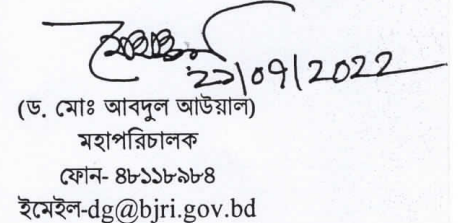 ২১/০৭/2022
(ড. মোঃ আবদুল আউয়াল)
মহাপরিচালক
ফোন- ৪৮১১৮৯৮৪
ইমেইল-dg@bjri.gov.bd